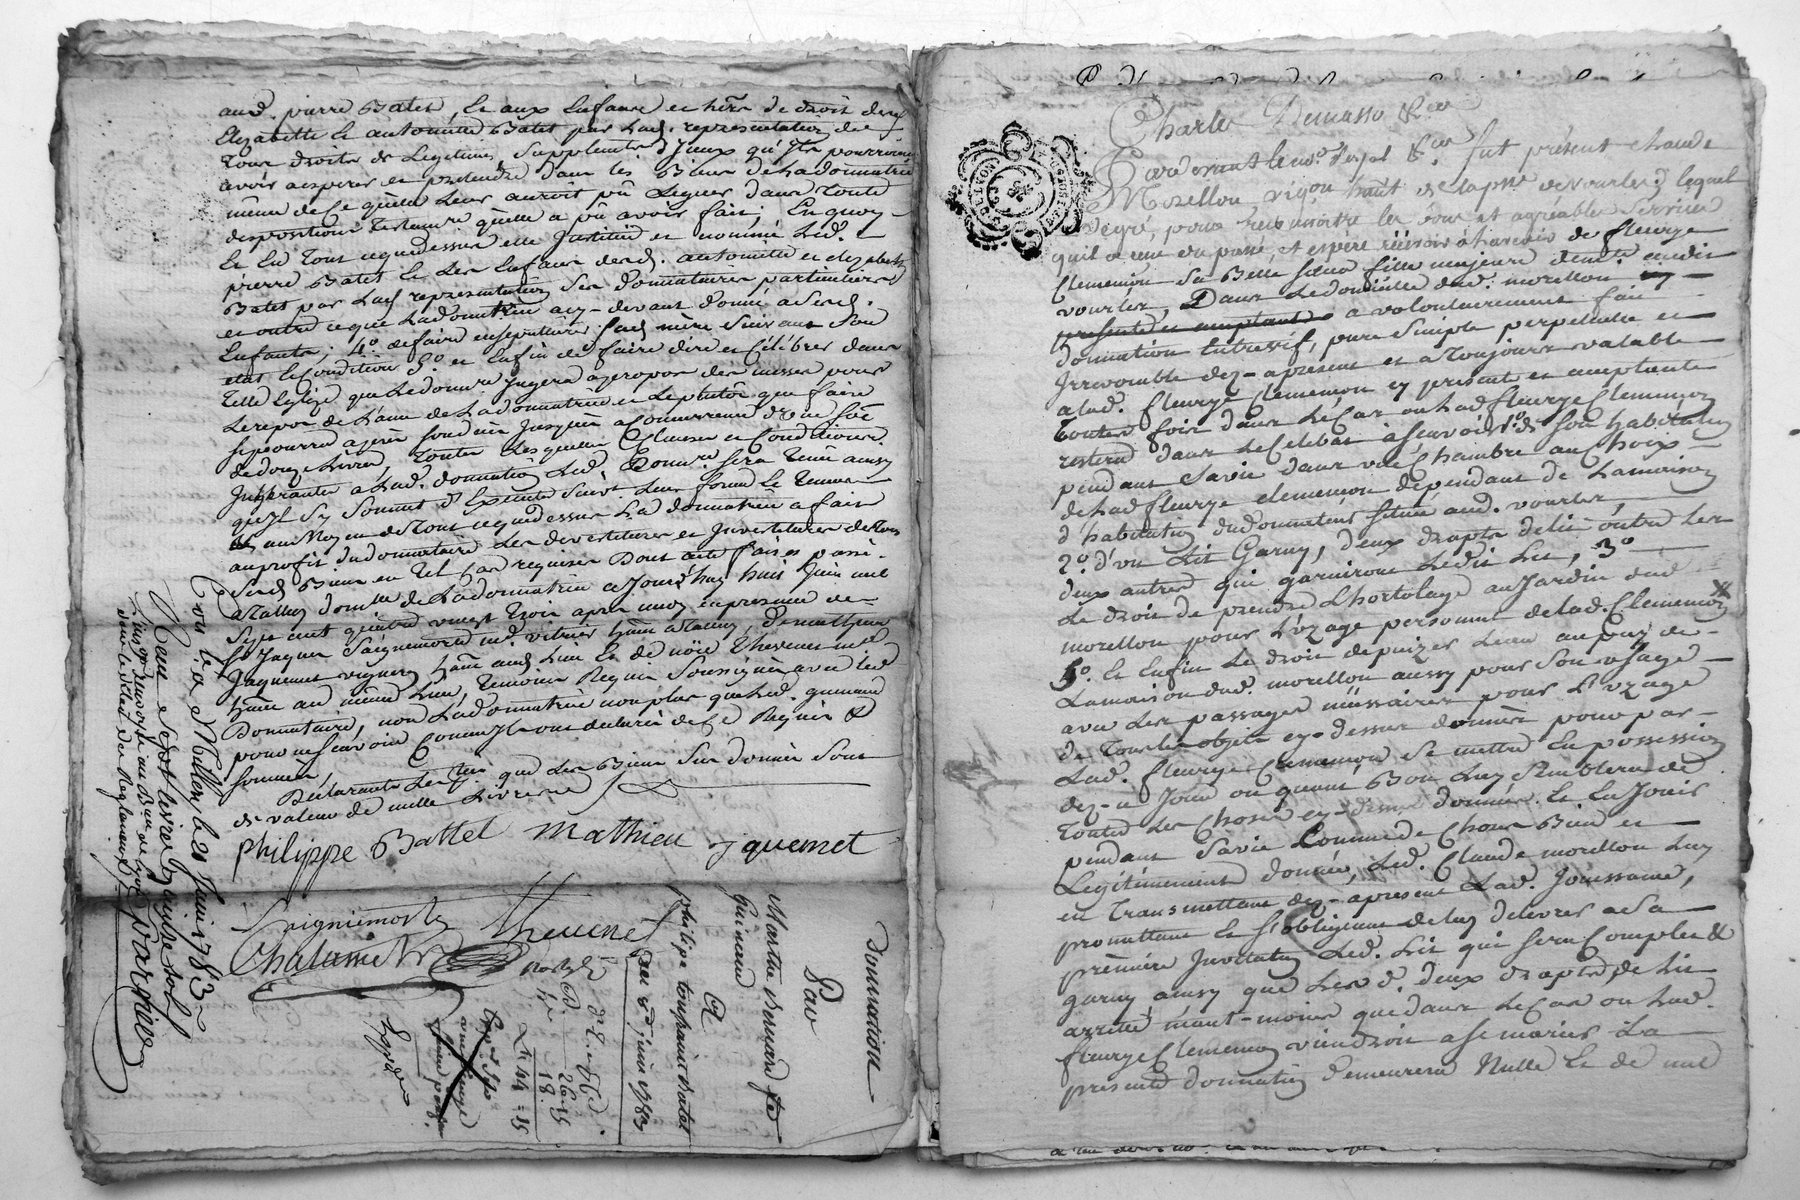 aud. pierre Batet, et aux Enfants et hérs de droit desd.
Elizabette et antoinette Batet par lad. representation de
tous droits de Legitime, supplement d'Jceux qu'Ils pourroient
avoir a esperer et pretendre dans les Biens de Ladonnatrice
même de ce quelle leur auroit pû Leguer dans toute
disposition testamre quelle a pû avoir fait; En quoy
Et En tout cequedessus elle Jnstitue et nomme led.
pierre Batet Et Les Enfans desd. antoinette et elizabette
Batet par lad representation ses donnataires particuliers
et outre ceque Ladonnatrice a cy-devant donné a sesd.
Enfants; 4.º de faire ensepulturer sad. mère suivant son
etat et condition 5.º et Enfin de faire dire et Célébrer dans
telle Eglize que Ledonnre Jugera apropos des messes pour
Lerepos de L'ame de Ladonnatrice et Leplutôt que faire
sepourra après son dec Jusqu'à concurrence de
de douze Livres, toutes Lesquelles Clauses et Conditions
Jnhérantes a lad. donnation Led. Donnre sera tenu ainsy
qu'Il s'y soumet d'Executer suivt leur forme et teneur
au Moyen de tout cequedessus La donnatrice a fait
auprofit dudonnataire Les devestitures et Jnvestitures de tous
sesd Biens en tel cas requises Dont acte fait et passé
a Talluy domlle de Ladonnatrice ce Jourd'huy huit Juin mil
sept cent quatre vingt trois apres midy en presence de
Sr Jaques Saignemorte md. vitrier hânt a Talluy, de matthieu
Jaquemet vigneron hânt aud. Lieu Et de
hânt au même Lieu, temoins Requis Soussignés avec led
Donnataire, non Ladonnatrice non plus que led. guinand
pour ne scavoir Comme Ils ont declaré de ce Requis &
sommés,
Déclarants Les que Les Biens sus donnés sont
de valeur de mille Livres
philippe Battel mathieu jquemet
Saignemorte Thevenet
Chalamel
Donnation
Par
Marthe Bernard fe
Guinand
A
philipe tompain Batet
Du 8d juin 1783
26.15
18
L 44 = 15
Con.lé a Millery le 21 Juin 1783
Reçu Sept livres quinze sols
Charles Demasso &.ca
Pardevant le nore Royal &.ca fut présent claude
Morellon vigon hânt de laprse de vourles, lequel
degré, pour reconnoitre les bons et agréables services
quil a eu du passé, et espere recevoir à lavenir de fleurye
Clemençon sa Belle sœur fille majeure demte audit
vourles, Dans Ledomicile dud. morellon cy
presente et acceptante a volontairement fait
donnation Entrevifs, pure Simple perpetuelle et
Jrrevocable dez-apresent et a toujours valable
alad. fleurye Clemençon cy presente et acceptante
toutes fois dans Lecas ou Lad fleurye Clemençon
resteroit dans le Celibat à scavoir 1.º de son habitation
pendant sa vie dans une Chambre au choix
de lad fleurye clemençon dépendant de Lamaison
d'habitation dudonnateur située aud. vourles,
2.º d'un Lit Garny, deux draps de lit outre Les
deux autres qui garniront Ledit Lit, 3.º
Le droit de prendre L'hortolage au Jardin dud
morellon pour L'uzage personnel delad. Clemençon
Et Enfin le droit depuizer Leau au puy de
Lamaison dud. morellon aussy pour son usage
avec Les passages nécessaires pour L'uzage
de tous les objets cy-dessus donnés pour par
Lad. fleurye Clemençon se mettre En possession
dez-a Jour ou quand Bon Luy semblera de
toutes Les choses cy-dessus données et En Jouir
pendant Savie Comme de choses Bien et
Legitimement données, Led. Claude morellon Luy
en transmettant dez-apresent Lad. Jouissance,
promettant et s'obligeant de luy delivrer a sa
première Jnvitation Led. Lit qui sera Complet &
garny ainsy que Lesd. deux draps de lit
arretté néant-moins que dans Lecas ou Lad.
fleurye Clemençon viendroit a se marier La
présente donnation demeurera Nulle et de nul